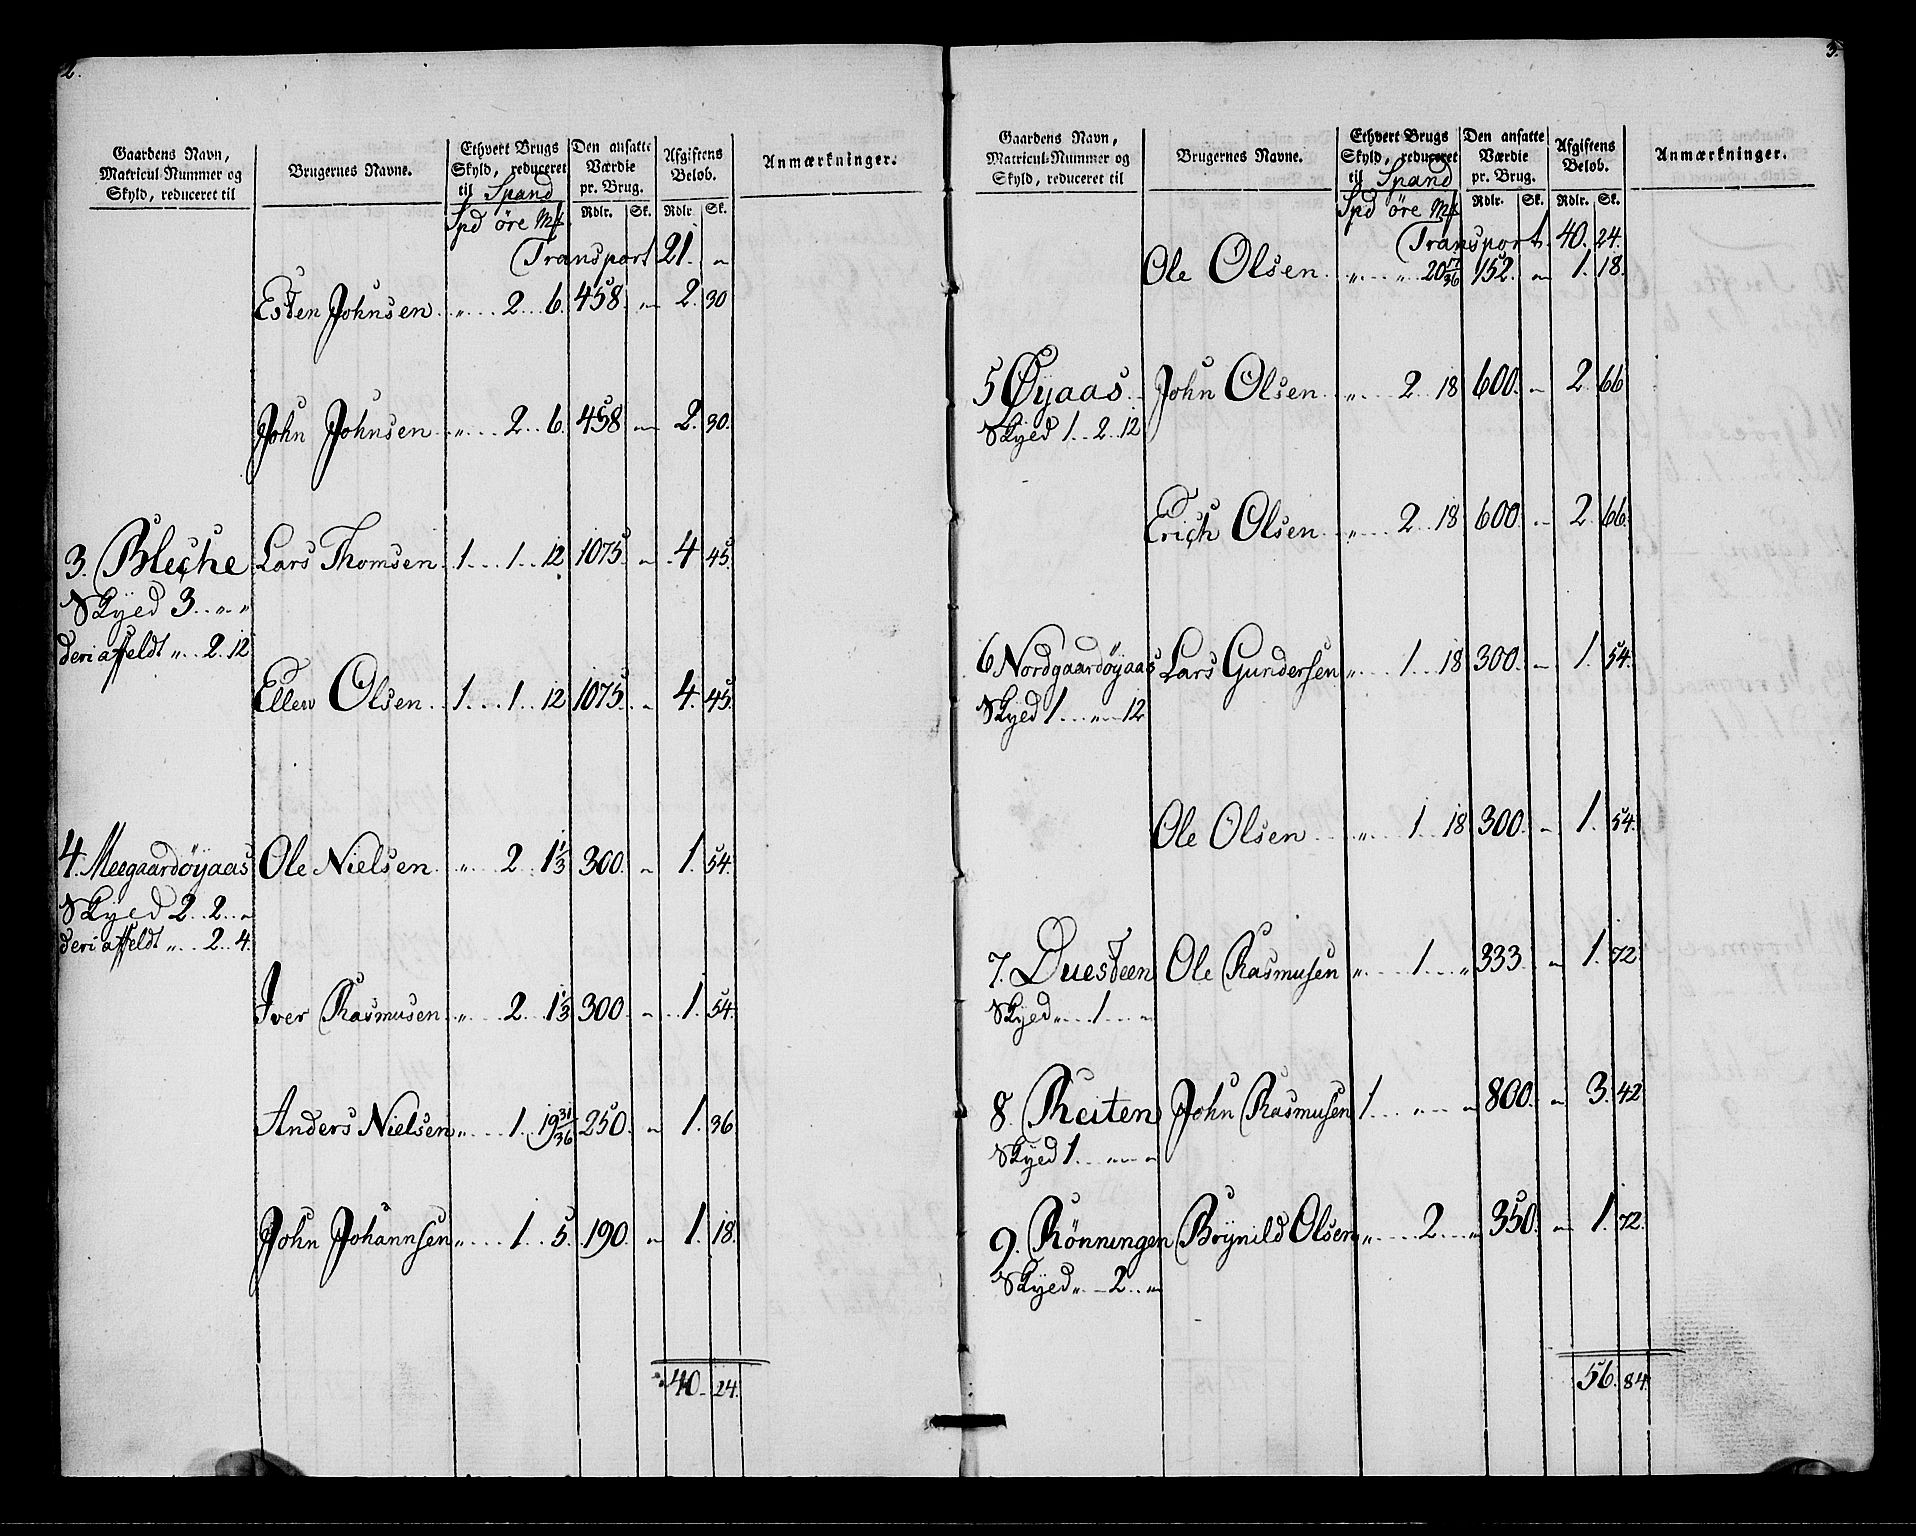 2.
Gaardens Navn, Matricul-Nummer og Skyld, reduceret til | Brugernes Navne. | Ethvert Brugs Skyld, reduceret til Spand | Den ansatte Værdie pr. Brug. | Afgiftens Belob. | Anmærkninger.
Spd öre Mk | Rdlr. | Sk. | Rdlr. | Sk.
Transport 21. "
Esten Johnsen " 2 6. 458 " 2. 30
John Johnsen " 2 6. 458 " 2. 30.
3. Bleche Lars Thomsen 1 1 12 1075 " 4 45.
Skyed 3 " "
deri affeldt " 2 12
Ellew Olsen 1 1 12 1075 " 4. 45.
4. Meegaardöyaas Ole Nielsen " 2 1 1/3 300 " 1. 54.
Skyed 2 2 "
deri affeldt " 2 4.
Iver Rasmusen " 2 1 1/3 300 " 1. 54.
Anders Nielsen " 1 19 31/36 250 " 1. 36
John Johannsen " 1 5. 190 " 1. 18.
40. 24.
3.
Gaardens Navn, Matricul-Nummer og Skyld, reduceret til | Brugernes Navne. | Ethvert Brugs Skyld, reduceret til Spand | Den ansatte Værdie pr. Brug. | Afgiftens Belob. | Anmærkninger.
Spd öre Mk | Rdlr. | Sk. | Rdlr. | Sk.
Transport 40. 24.
Ole Olsen " " 20 17/36 152. " 1. 18.
5 Øyaas John Olsen " 2 18 600. " 2 66
Skyed 1 2 12
Erich Olsen " 2 18 600 " 2 66.
6 Nordgaardöyaas Lars Gundersen " 1 18 300. " 1. 54.
Skyed 1 " 12
Ole Olsen " 1 18 300. " 1. 54.
7. Duesteen Ole Rasmusen " 1 " 333 " 1. 72
Skyed " 1 "
8. Reiten John Rasmusen 1 " " 800. " 3. 42
Skyed 1 " "
9. Rönningen Brynild Olsen " 2 " 350. " 1. 72.
Skyed " 2 "
56. 84.